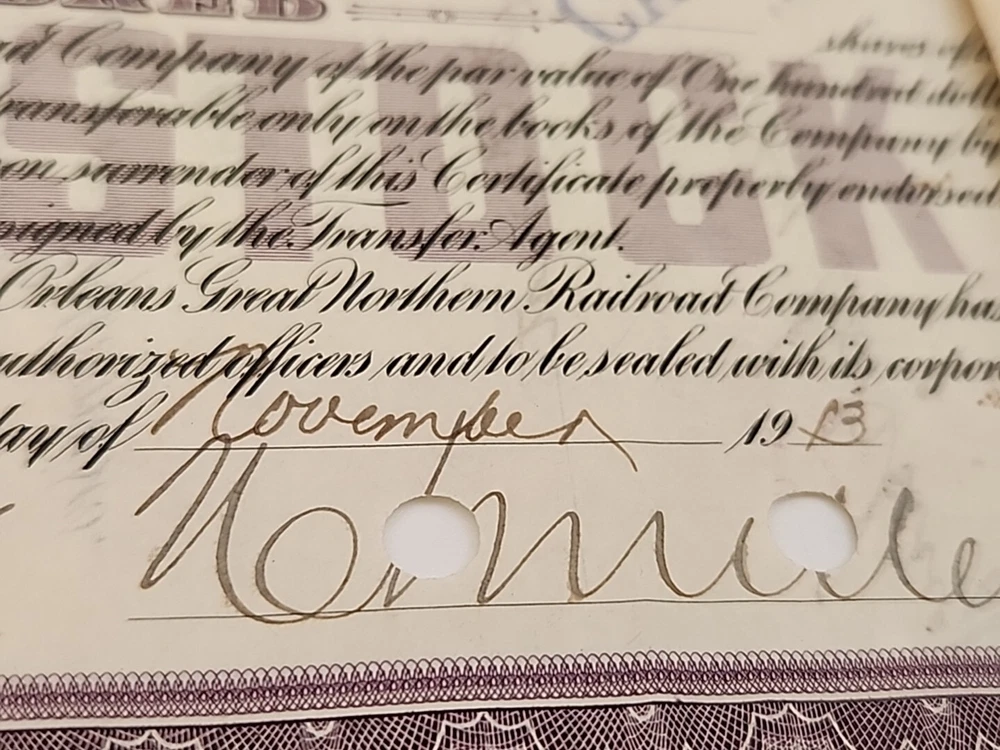 Company of the par value of One hundred
transferable only on the books of the Company by
surrender of this Certificate properly endorsed
signed by the Transfer Agent.
Orleans Great Northern Railroad Company has
authorized officers and to be sealed with its corpor
day of November 1913
STOCK